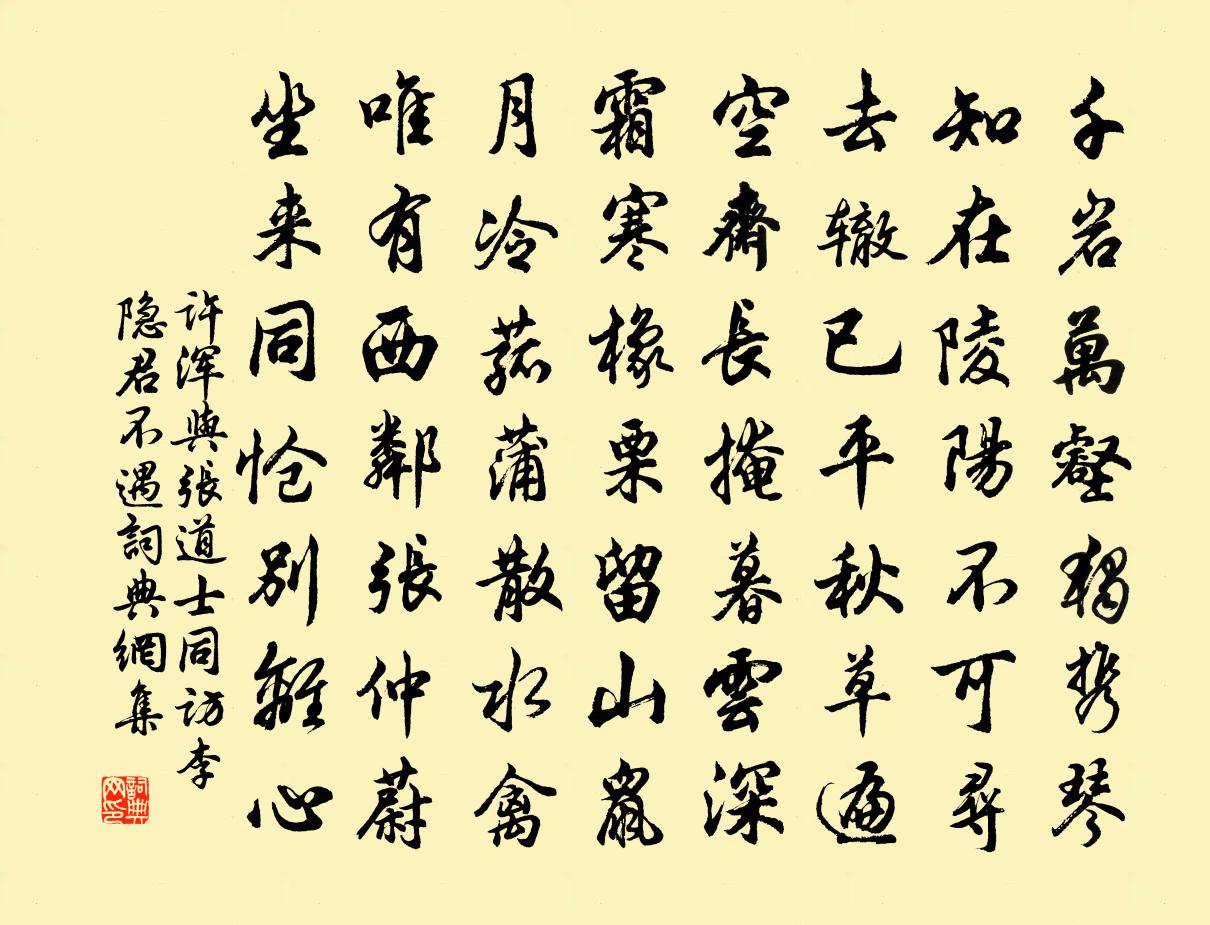 千岩萬壑獨携琴
知在陵陽不可尋
去辙已平秋草遍
空齋長掩暮雲深
霜寒橡栗留山鼠
月冷菰蒲散水禽
唯有西鄰張仲蔚
坐来同怆別離心
许渾與張道士同访李
隐君不遇詞典網集
詞典网印